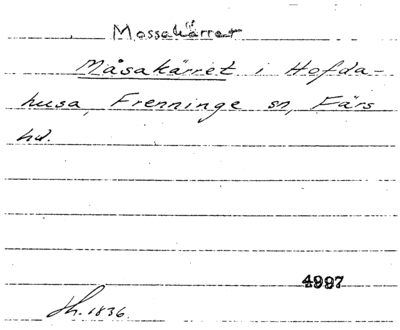 Mossakärret
Måsakärret i Hofda-
husa, Frenninge sn, Färs
hd.
4997
Jh. 1836